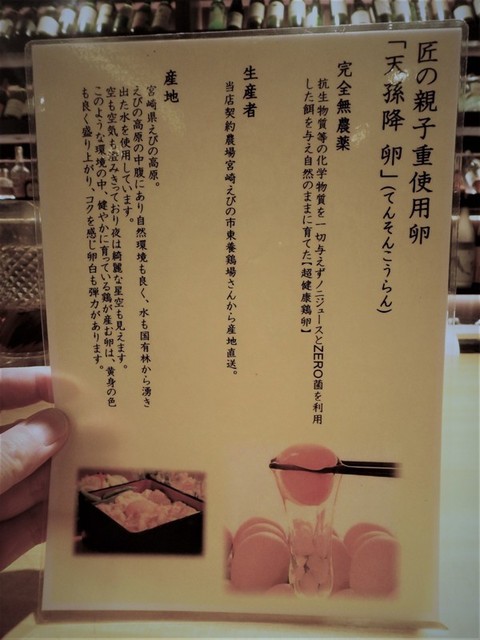 匠の親子重使用卵
「天孫降 卵」(てんそんこうらん)
完全無農薬
抗生物質等の化学物質を一切与えずノニジュースとZERO菌を利用
した餌を与え自然のままに育てた【超健康鶏卵】
生産者
当店契約農場宮崎えびの市東養鶏場さんから産地直送。
産地
宮崎県えびの高原。
えびの高原の中腹にあり自然環境も良く、水も国有林から湧き
出た水を使用しています。
空も空気も澄みきっており夜は綺麗な星空も見えます。
このような環境の中、健やかに育っている鶏が産む卵は、黄身の色
も良く盛り上がり、コクを感じ卵白も弾力があります。